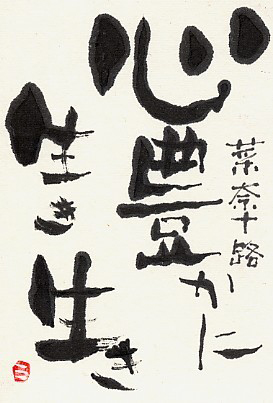 菜奈十路
心豊かに
生き生き